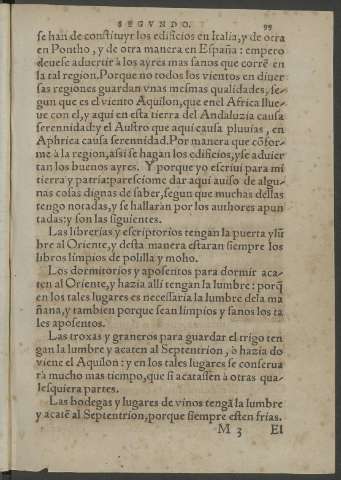 SEGVNDO. 95
se han de constituyr los edificios en Italia, y de otra
en Pontho, y de otra manera en España: empero
deuese aduertir à los ayres mas sanos que corrē en
la tal region. Porque no todos los vientos en diuer
sas regiones guardan vnas mesmas qualidades, se-
gun que es el viento Aquilon, que en el Africa llue-
ue con el, y aqui en esta tierra del Andaluzia causa
serennidad: y el Austro que aqui causa pluuias, en
Aphrica causa serennidad. Por manera que cōfor-
me à la region, assi se hagan los edificios, y se aduier
tan los buenos ayres. Y porque yo escriui para mi
tierra y patria: paresciome dar aqui auiso de algu-
nas cosas dignas de saber, segun que muchas dellas
tengo notadas, y se hallaràn por los authores apun
tadas: y son las siguientes.
Las librerias y escriptorios tengan la puerta y lū
bre al Oriente, y desta manera estaran siempre los
libros limpios de polilla y moho.
Los dormitorios y aposentos para dormir aca-
ten al Oriente, y hazia alli tengan la lumbre: porq̄
en los tales lugares es necessaria la lumbre de la ma
ñana, y tambien porque sean limpios y sanos los ta
les aposentos.
Las troxas y graneros para guardar el trigo ten
gan la lumbre y acaten al Septentrion, ò hazia do
viene el Aquilon: y en los tales lugares se conserua
rà mucho mas tiempo, que si acatassen à otras qua-
lesquiera partes.
Las bodegas y lugares de vinos tengā la lumbre
y acatē al Septentrion, porque siempre esten frias.
M 3 El